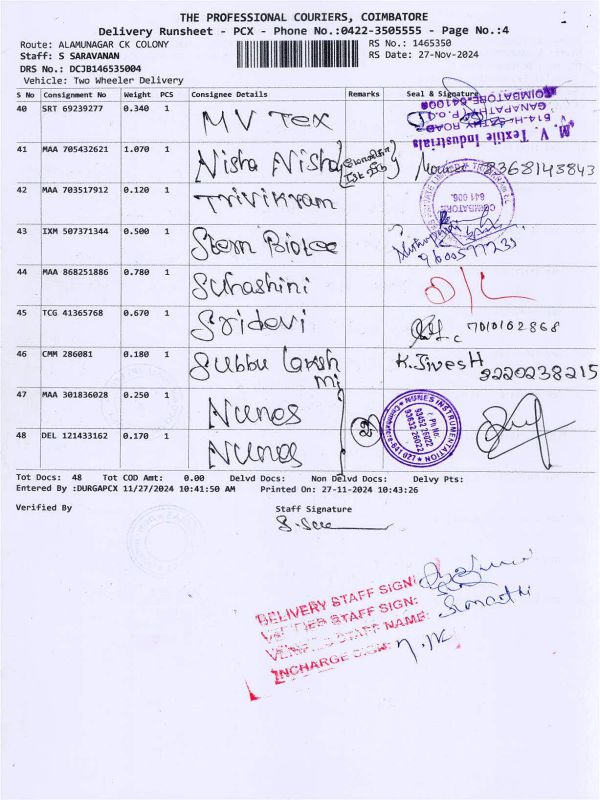 THE PROFESSIONAL COURIERS, COIMBATORE
Delivery Runsheet - PCX - Phone No.:0422-3505555 - Page No.:4
Route: ALAMUNAGAR CK COLONY RS No.: 1465350
Staff: S SARAVANAN RS Date: 27-Nov-2024
DRS No.: DCJB146535004
Vehicle: Two Wheeler Delivery
S No Consignment No Weight PCS Consignee Details Remarks Seal & Signature
40 SRT 69239277 0.340 1 MV Tex
M. V. Textile Industrials
514-H, SATHY ROAD
GANAPATHY P.O.
COIMBATORE-641006
41 MAA 705432621 1.070 1 Nisha Nisha 8368143843
42 MAA 703517912 0.120 1 Trivikram
COIMBATORE
641 006.
43 IXM 507371344 0.500 1 Stern 9600577235
44 MAA 868251886 0.780 1 Suhashini D/L
45 TCG 41365768 0.670 1 Sridevi 7010162868
46 CMM 286081 0.180 1 Subbu Laksh
mi K. Jivesh 9220238215
47 MAA 301836028 0.250 1 Nunes
NUNES INSTRUMENTATION
Ph No.
93452 26022
93632 26022
Coimbatore-641 027
48 DEL 121433162 0.170 1 Nunes
Tot Docs: 48 Tot COD Amt: 0.00 Delvd Docs: Non Delvd Docs: Delvy Pts:
Entered By :DURGAPCX 11/27/2024 10:41:50 AM Printed On: 27-11-2024 10:43:26
Verified By Staff Signature
DELIVERY STAFF SIGN:
VERIFIED STAFF SIGN:
VERIFIED STAFF NAME:
INCHARGE SIGN: